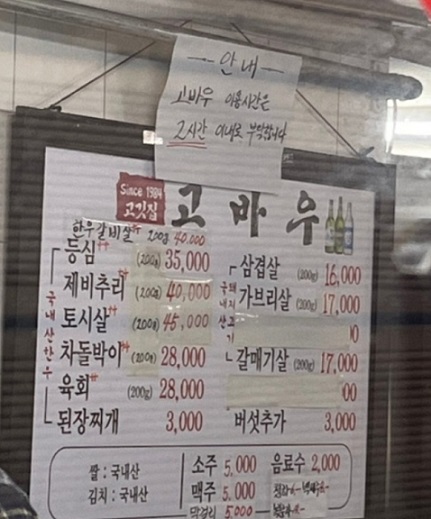 안내
고바우 이용시간은
2시간 이내로 부탁합니다
Since 1984
고깃집
고바우
한우갈비살++ 200g 40,000
등심++ (200g) 35,000
제비추리++ (200g) 40,000
토시살++ (200g) 45,000
차돌박이++ (200g) 28,000
육회++ (200g) 28,000
된장찌개 3,000
국내산한우
삼겹살 (200g) 16,000
가브리살 (200g) 17,000
갈매기살 (200g) 17,000
00
버섯추가 3,000
국내산
돼지고기
쌀 : 국내산
김치 : 국내산
소주 5,000
맥주 5,000
막걸리 5,000
음료수 2,000